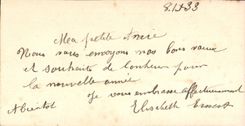 Ma petite
Nous vous envoyons nos bons vœux
et souhaits de bonheur pour
la nouvelle année
Je vous embrasse affectueusement
A bientôt
Elisabeth Ernest